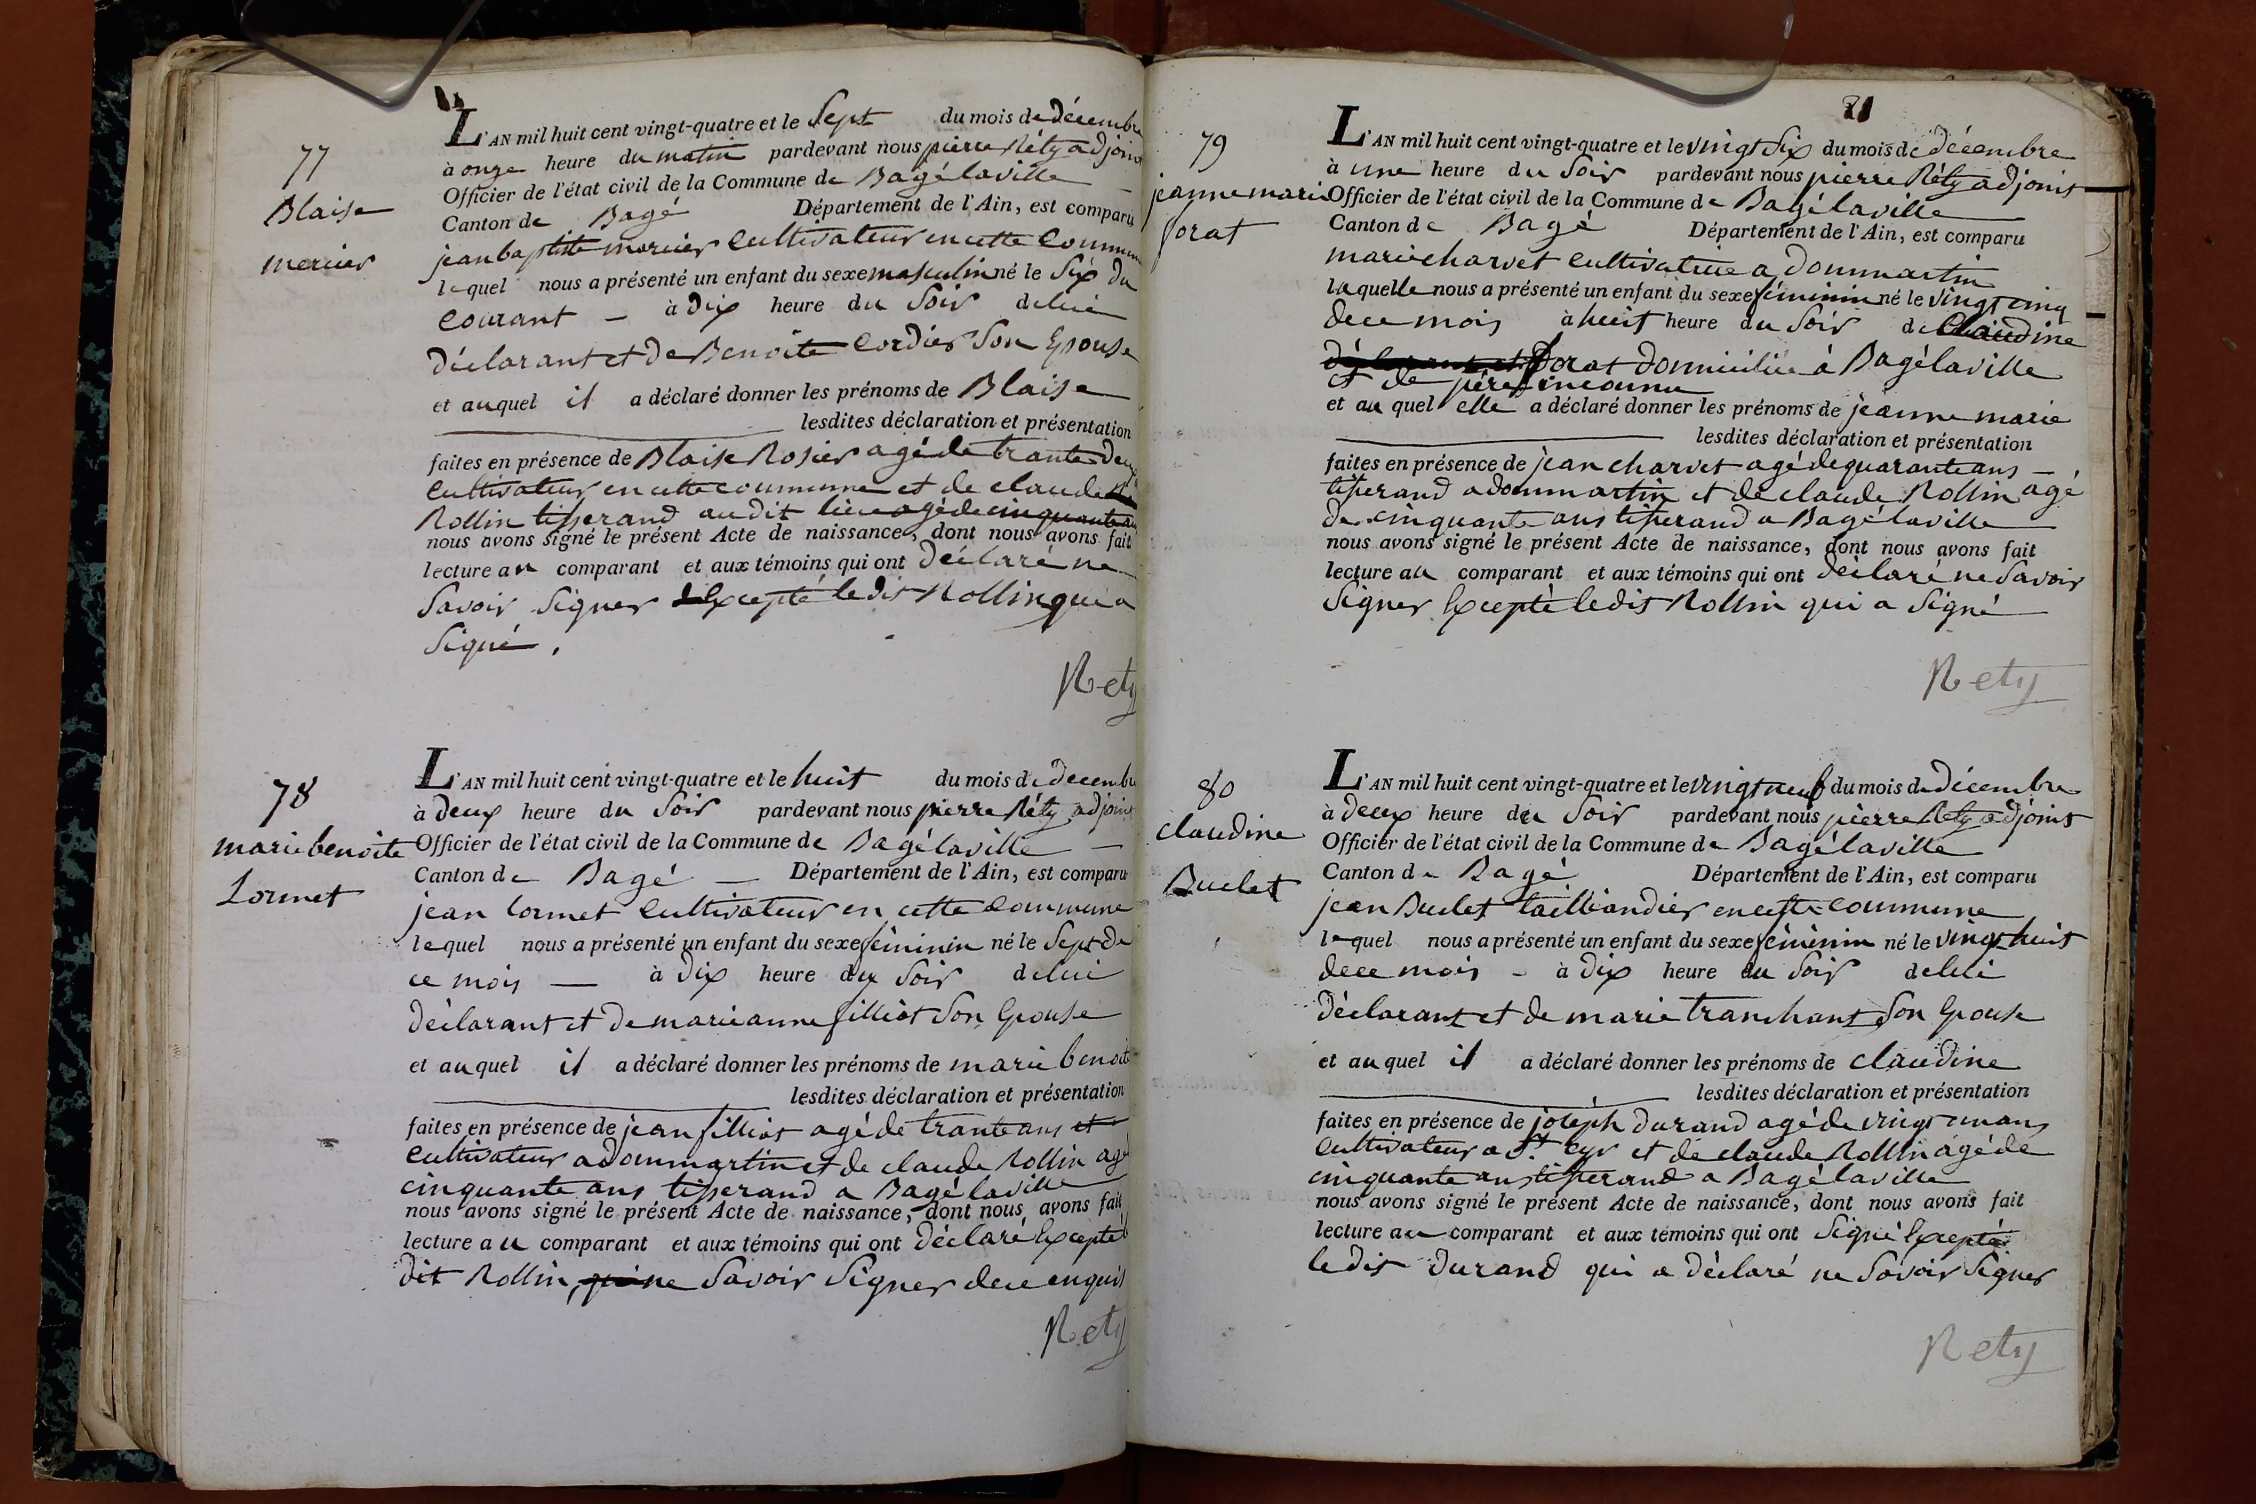 77
Blaise
mercier
L'AN mil huit cent vingt-quatre et le Sept du mois de décembre
à onze heure du matin pardevant nous pierre Réty adjoint
Officier de l'état civil de la Commune de Bagélaville
Canton de Bagé Département de l'Ain, est comparu
jean baptiste mercier cultivateur en cette commune
lequel nous a présenté un enfant du sexe masculin né le Six du
courant - à dix heure du Soir de lui
déclarant et de Benoite Cordier Son Epouse
et auquel il a déclaré donner les prénoms de Blaise
lesdites déclaration et présentation
faites en présence de Blaise Rosier agé de trante deux
cultivateur en cette commune et de claude
Rollin tisserand au dit lieu agé de cinquante ans
nous avons signé le présent Acte de naissance, dont nous avons fait
lecture au comparant et aux témoins qui ont déclaré ne
Savoir Signer Excepté ledit Rollin qui a
Signé.
Rety
78
marie benoite
Lormet
L'AN mil huit cent vingt-quatre et le huit du mois de decembre
à deux heure du Soir pardevant nous pierre Réty adjoint
Officier de l'état civil de la Commune de Bagélaville
Canton de Bagé Département de l'Ain, est comparu
jean lormet cultivateur en cette commune
lequel nous a présenté un enfant du sexe féminin né le Sept de
ce mois à dix heure du Soir de lui
déclarant et de marie anne filliot Son Epouse
et auquel il a déclaré donner les prénoms de marie benoite
lesdites déclaration et présentation
faites en présence de jean filliot agé de trante ans et
cultivateur a dommartin et de claude Rollin agé
cinquante ans tisserand a Bagélaville
nous avons signé le présent Acte de naissance, dont nous avons fait
lecture au comparant et aux témoins qui ont déclaré Excepté
dit Rollin, ne Savoir Signer de ce enquis
Rety
71
79
jeanne marie
forat
L'AN mil huit cent vingt-quatre et le vingt Six du mois de décembre
à une heure du Soir pardevant nous pierre Réty adjoint
Officier de l'état civil de la Commune de Bagélaville
Canton de Bagé Département de l'Ain, est comparu
marie charvet cultivatrice a dommartin
laquelle nous a présenté un enfant du sexe féminin né le vingt cinq
de ce mois à huit heure du Soir de Claudine
déclarant et forat domiciliée à Bagélaville
et de père inconnu
et au quel elle a déclaré donner les prénoms de jeanne marie
lesdites déclaration et présentation
faites en présence de jean charvet agé de quarante ans
tisserand a dommartin et de claude Rollin agé
de cinquante ans tisserand a Bagélaville
nous avons signé le présent Acte de naissance, dont nous avons fait
lecture au comparant et aux témoins qui ont déclaré ne Savoir
Signer Excepté ledit Rollin qui a Signé
Rety
80
claudine
Buclet
L'AN mil huit cent vingt-quatre et le vingt neuf du mois de décembre
à deux heure du Soir pardevant nous pierre Réty adjoint
Officier de l'état civil de la Commune de Bagélaville
Canton de Bagé Département de l'Ain, est comparu
jean Buclet taillandier en cette commune
lequel nous a présenté un enfant du sexe féminin né le vingt huit
de ce mois - à dix heure du Soir de lui
déclarant et de marie tranchant Son Epouse
et auquel il a déclaré donner les prénoms de claudine
lesdites déclaration et présentation
faites en présence de joseph durand agé de vingt un ans
cultivateur a St. Cyr et de claude Rollin agé de
cinquante ans tisserand a Bagélaville
nous avons signé le présent Acte de naissance, dont nous avons fait
lecture au comparant et aux témoins qui ont Signé Excepté
ledit durand qui a déclaré ne Savoir Signer
Rety